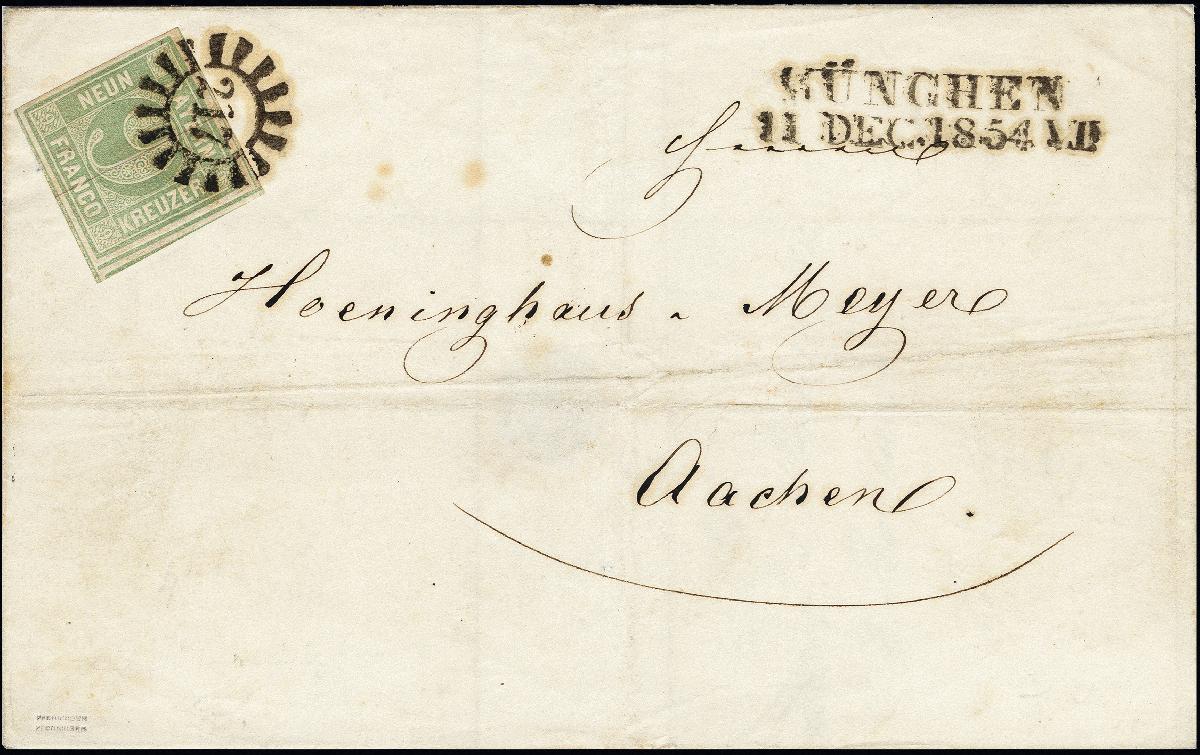 NEUN
BAYERN
FRANCO
KREUZER
9
217
MÜNCHEN
11 DEC. 1854 VII
Herrn
Hoeninghaus & Meyer
Aachen.